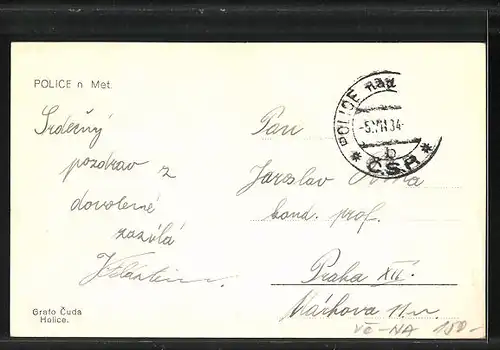 POLICE n Met.
Srdečný
pozdrav z
dovolené
zasílá
Pan
Jaroslav
kand. prof.
Praha XII.
Máchova 11.
POLICE nad
-5.VII.34-
b
* Č.S.P. *
Grafo Čuda
Holice.
VČ-NA 150-